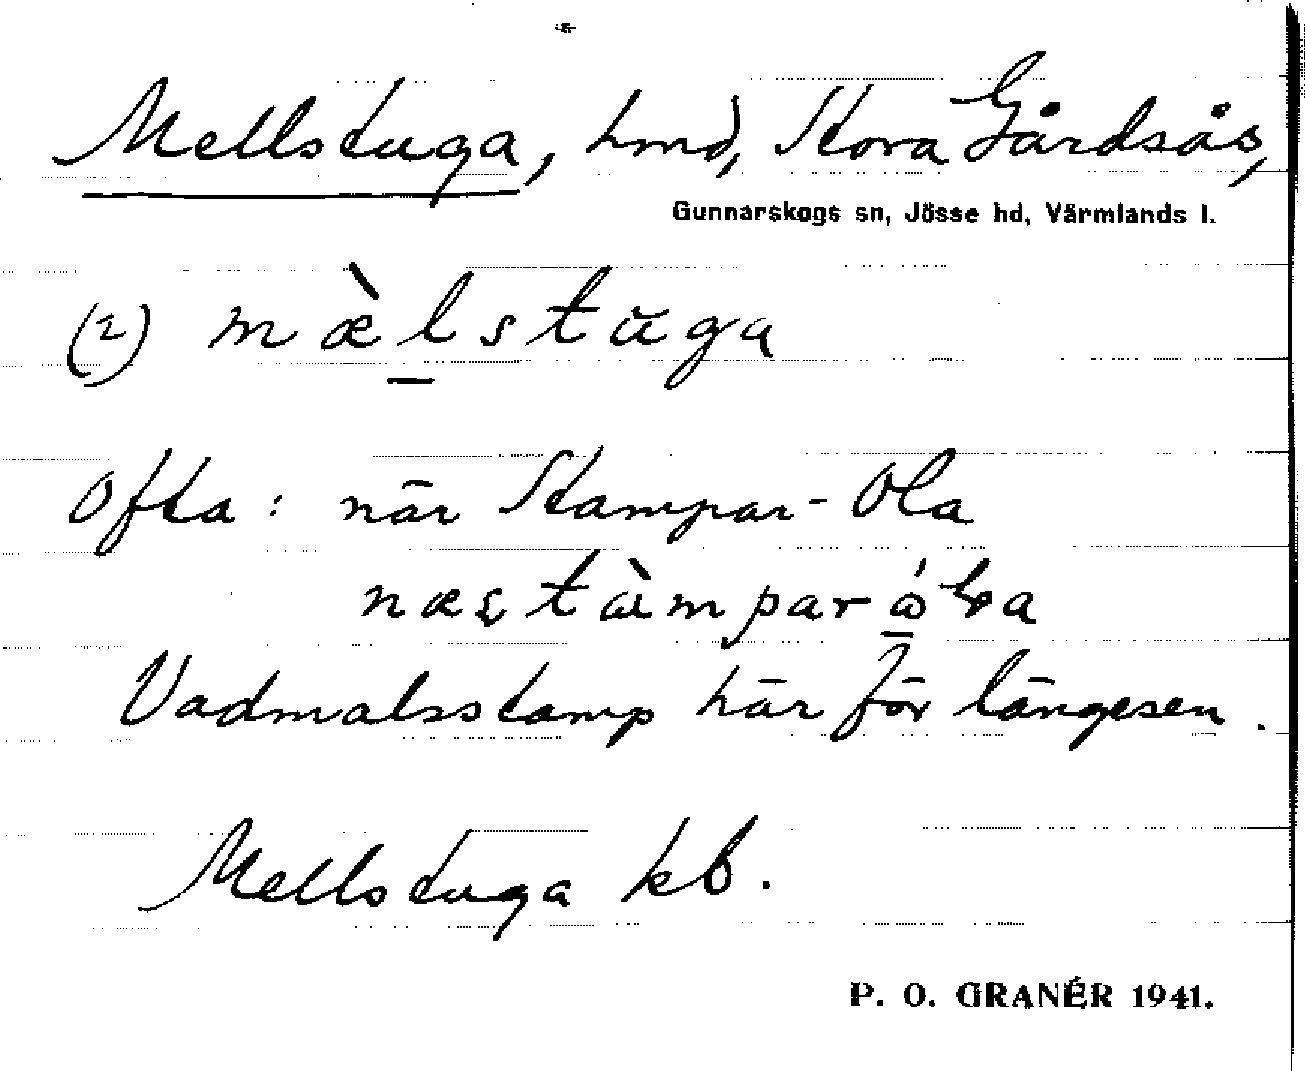 Mellstuga, hmd, Stora Gårdsås,
Gunnarskogs sn, Jösse hd, Värmlands l.
(2) mæ̀l̲stŭga
Ofta: när Stampar-Ola
Vadmalsstamp här för längesen.
Mellstuga kb.
P. O. GRANÉR 1941.